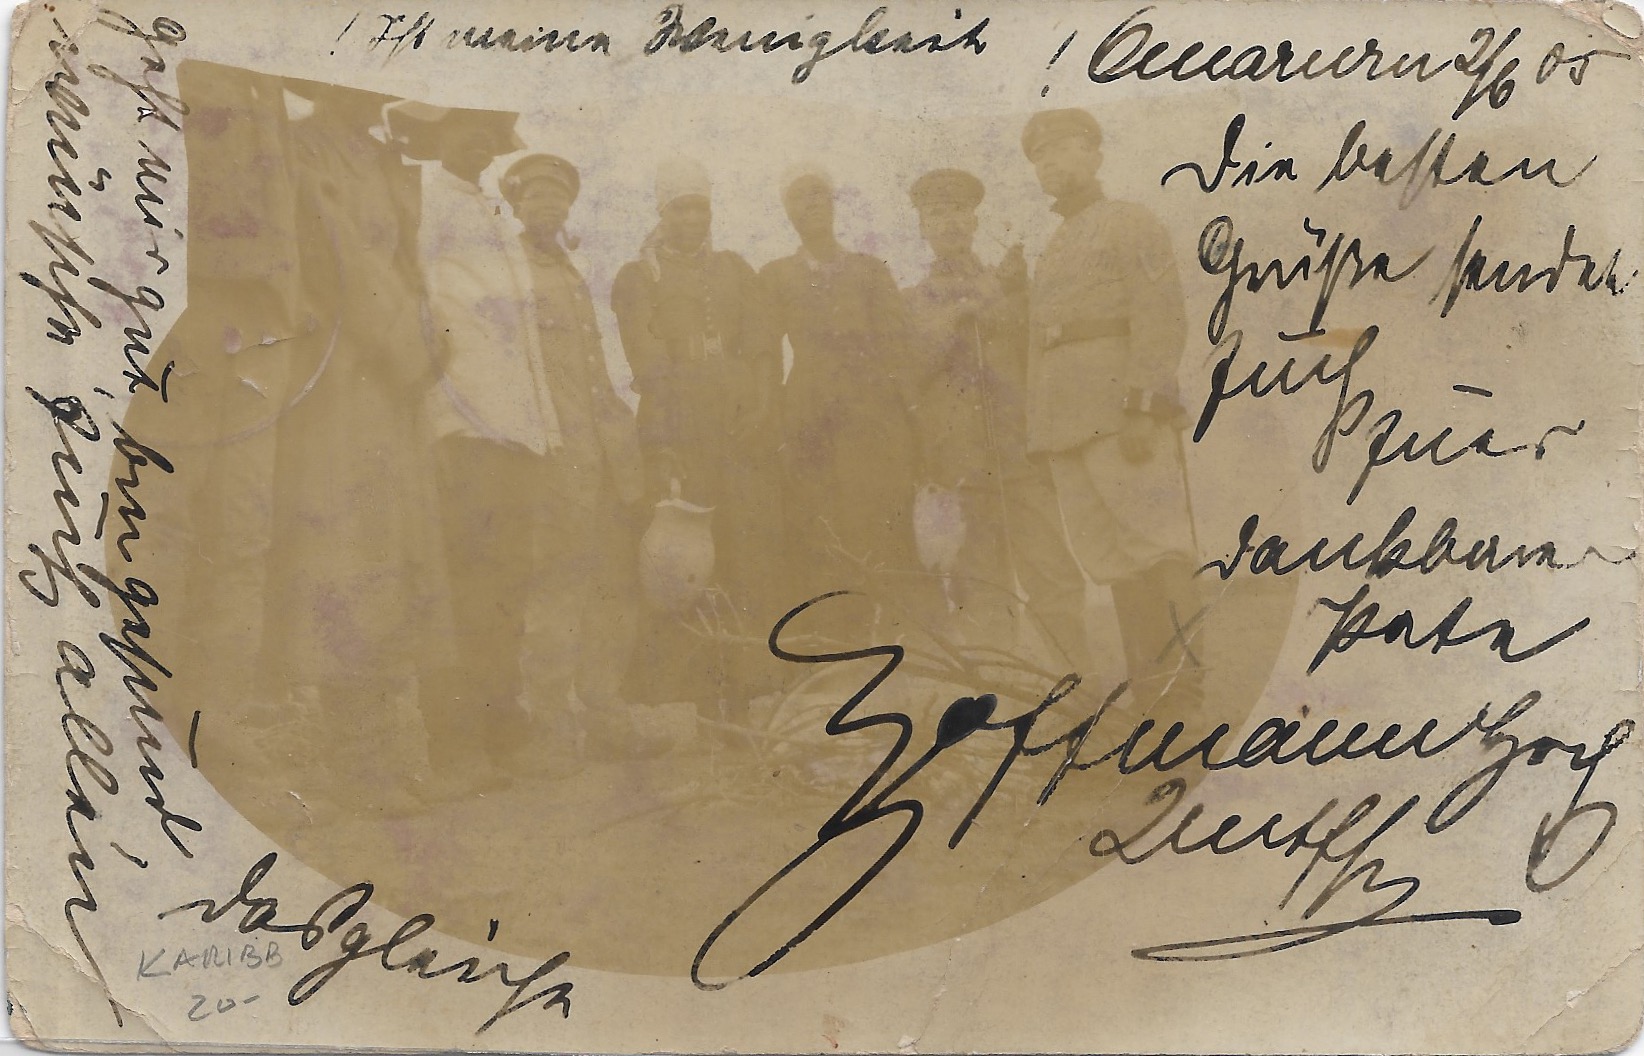 ! Ist meine Wenigkeit !
Omaruru 2/6 05
Die besten
Grüße sendet
Euch
Euer
dankbarer
Pate
Hoffmann Hoch
Deutsch
geht mir gut, bin gesund,
wünsche Euch allen
dasgleiche
KARIBB
20-
X